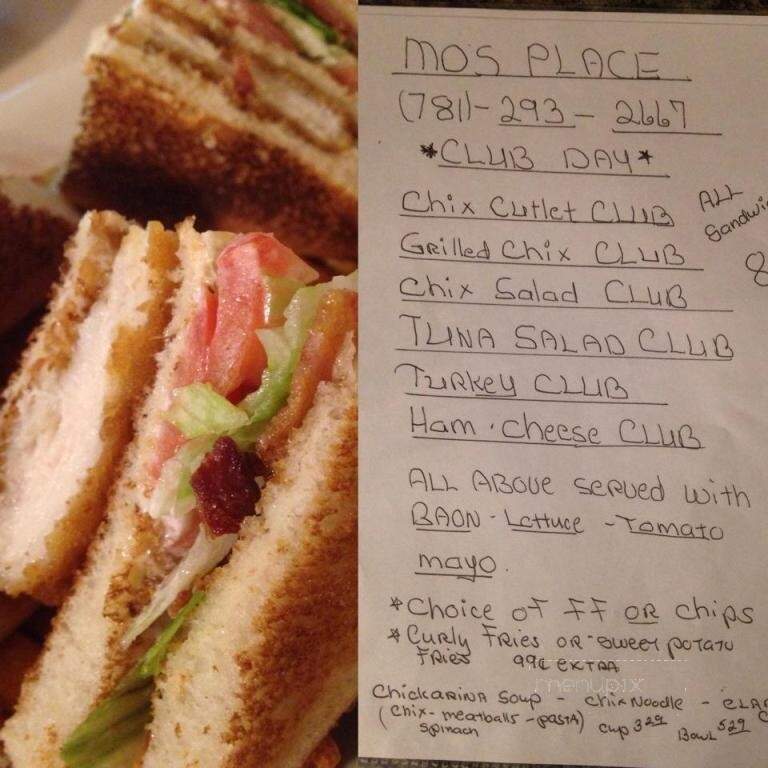 MO'S PLACE
(781)-293-2667
*CLUB DAY*
Chix Cutlet CLUB
ALL
Sandwic
8
GRilled Chix CLUB
Chix Salad CLUB
TUNA SALAD CLUB
TURKEY CLUB
Ham . Cheese CLUB
ALL ABOVE SERVED with
BAON - Lettuce - Tomato
mayo.
*Choice of FF OR Chips
*CURLY FRIES OR SWEET POTATO
FRIES 99¢ EXTRA
menupix
ChickARINA Soup - Chix Noodle - CLA
(Chix - meatballs - PASTA) Cup 3 29 Bowl 5 29 C
Spinach